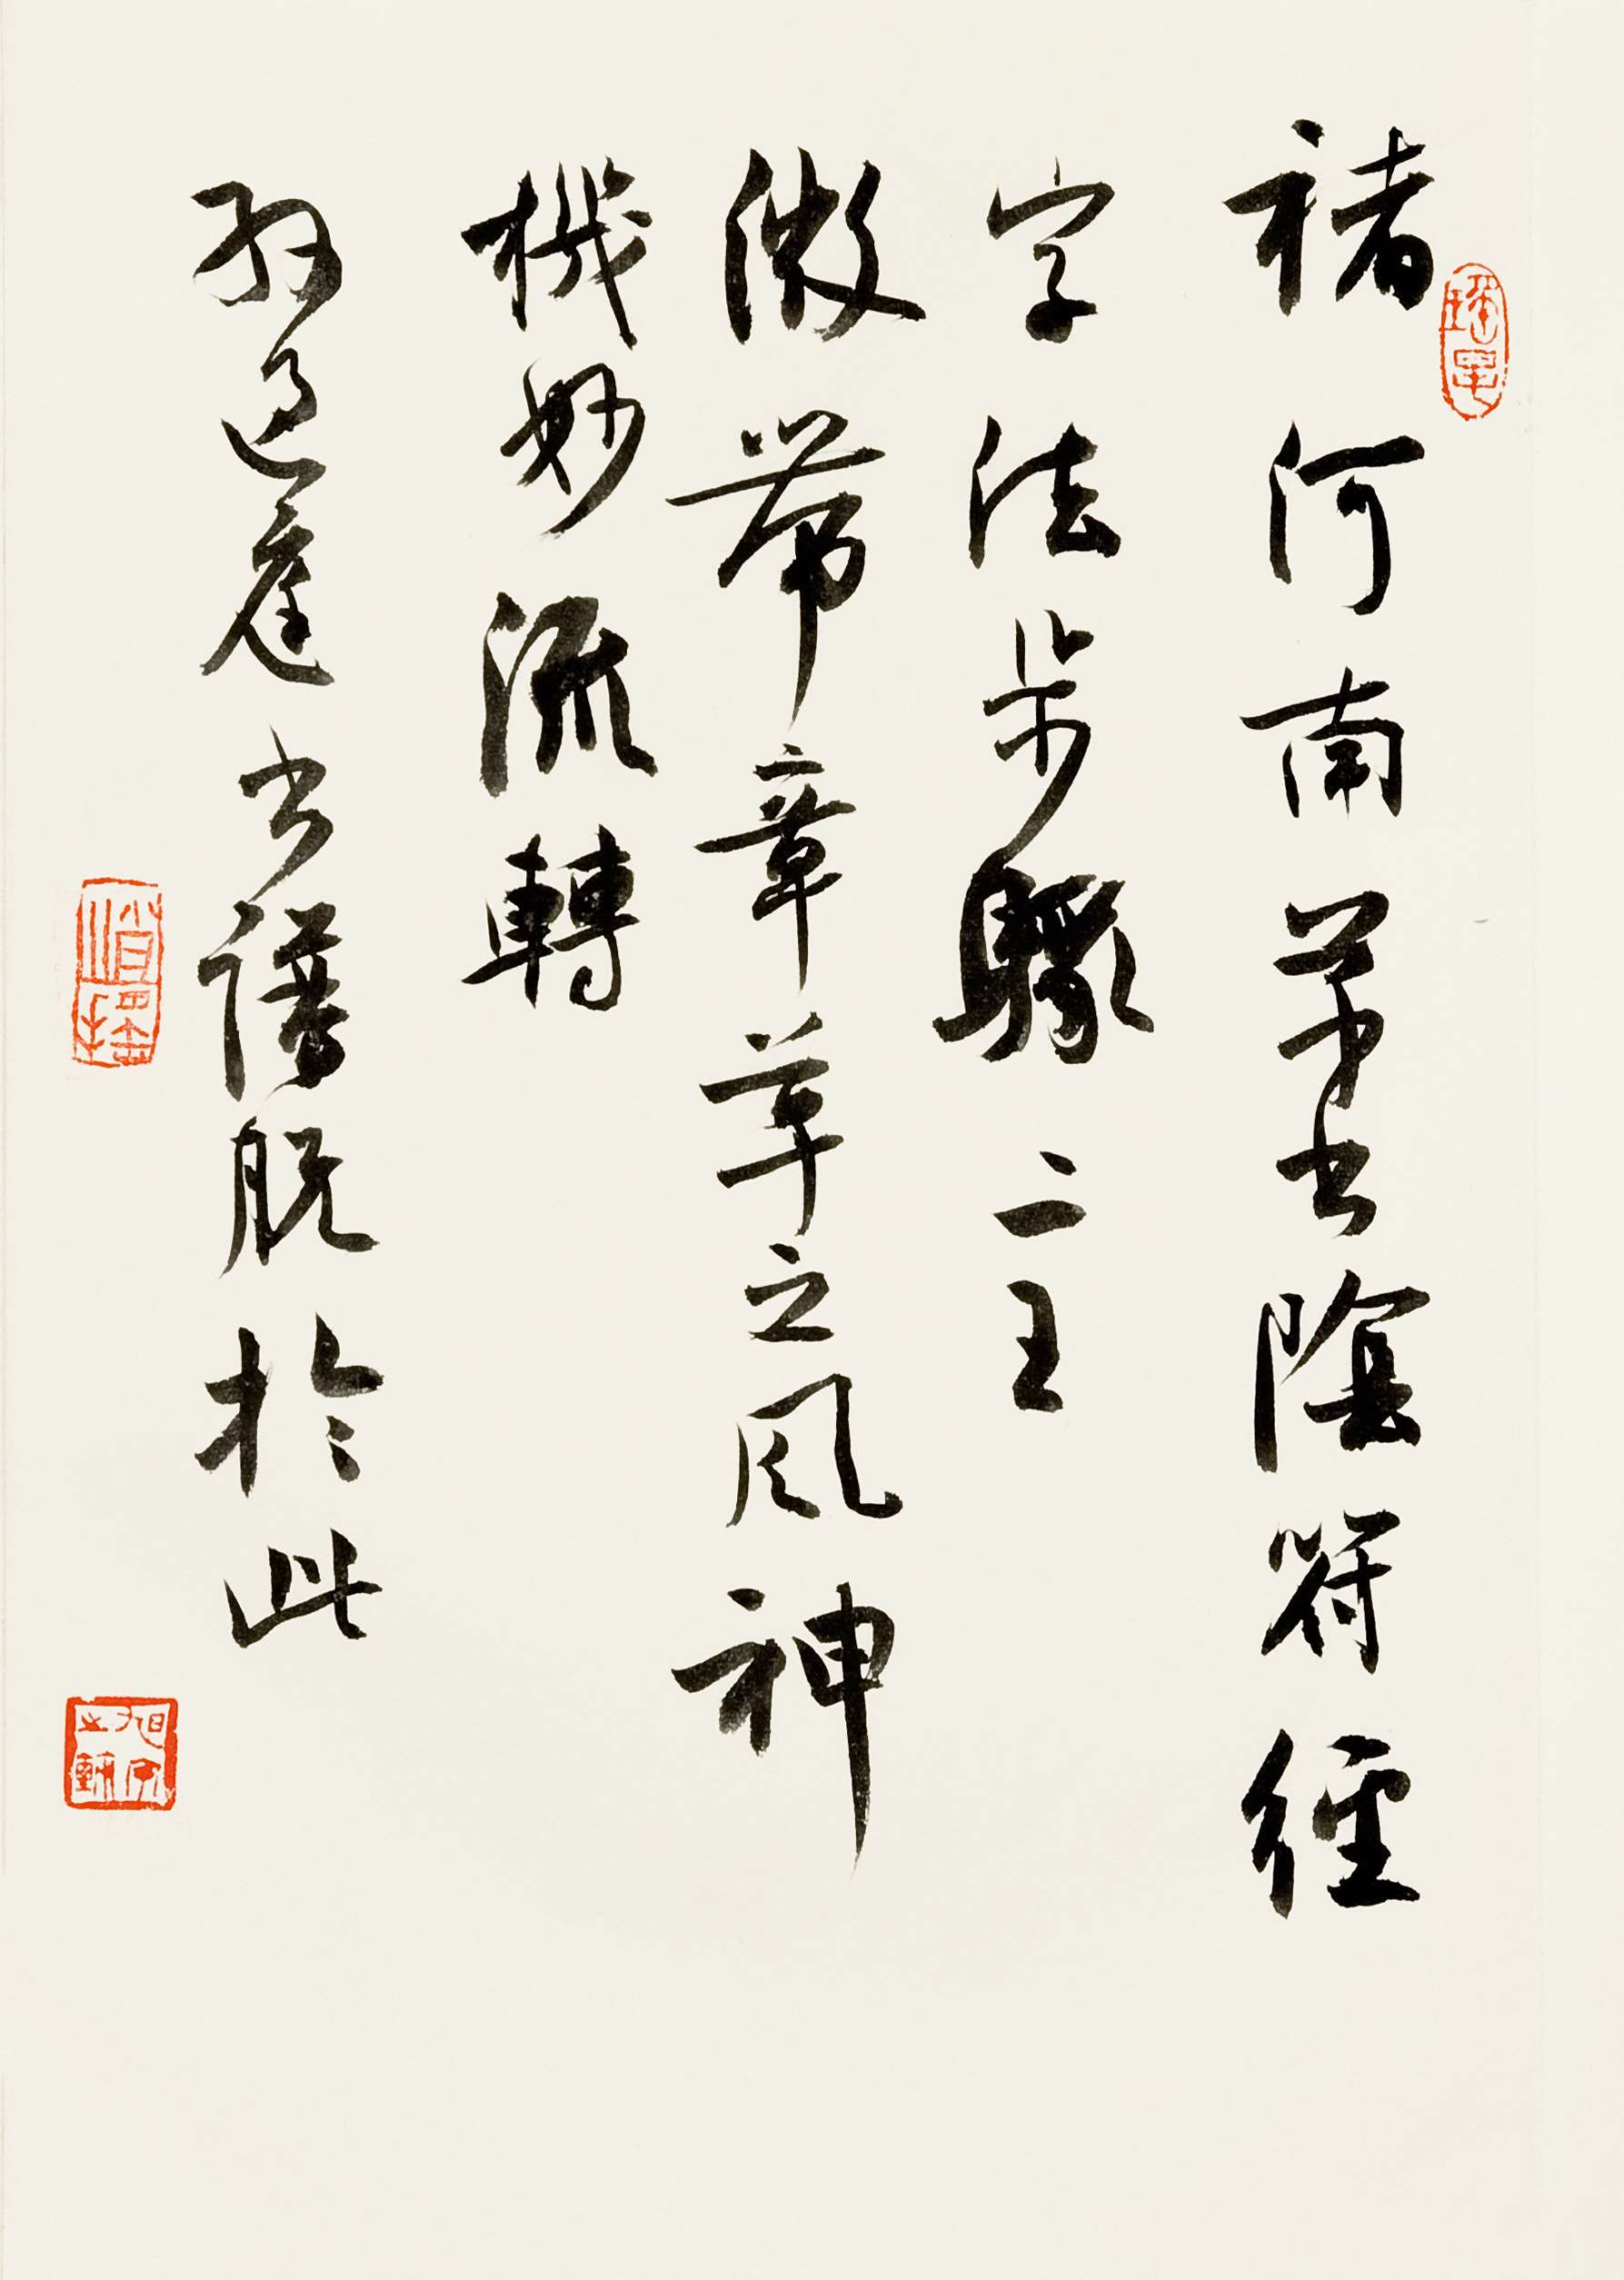 褚河南草書陰符經
字法步驟二王
微帶章草之風神
機妙流轉
孫過庭書譜脱於此